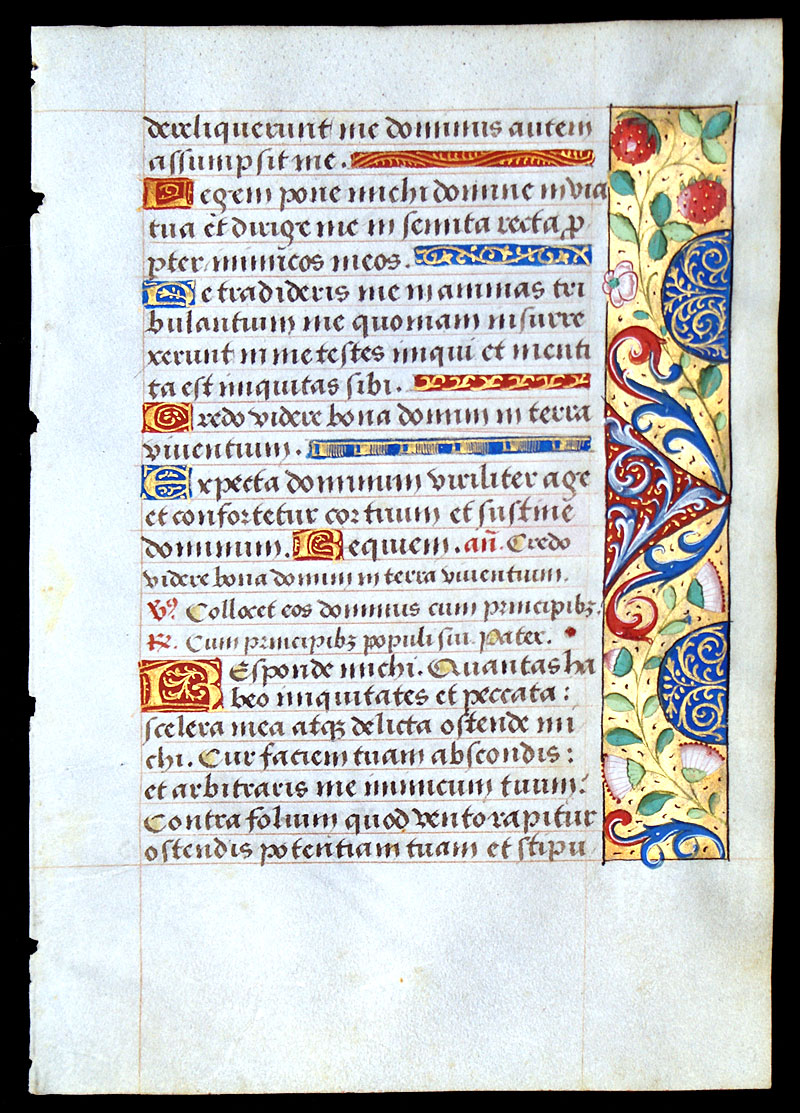 dereliquerunt me dominus autem
assumpsit me.
Legem pone michi domine in via
tua et dirige me in semita recta p̱ro
pter inimicos meos.
Ne tradideris me in animas tri
bulantium me quoniam insurre
xerunt in me testes iniqui et menti
ta est iniquitas sibi.
Credo videre bona domini in terra
viventium.
Expecta dominum viriliter age
et confortetur cor tuum et sustine
dominum. Requiem. añ. Credo
videre bona domini in terra viventium.
℣. Collocet eos dominus cum principibꝫ.
℟. Cum principibꝫ populi sui. Pater.
Responde michi. Quantas ha
beo iniquitates et peccata:
scelera mea atqꝫ delicta ostende mi
chi. Cur faciem tuam abscondis:
et arbitraris me inimicum tuum?
Contra folium quod vento rapitur
ostendis potentiam tuam et stipu